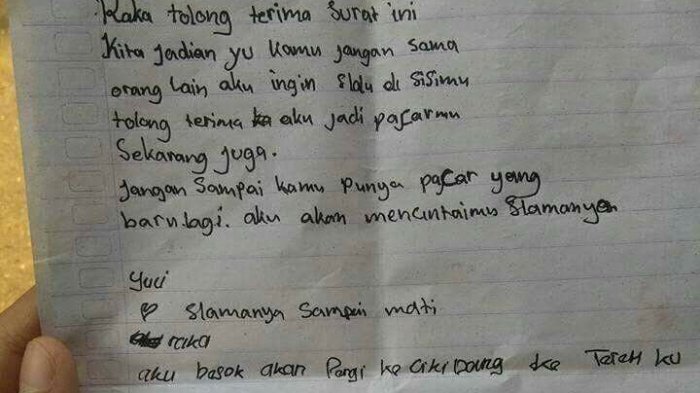 Raka tolong terima surat ini
Kita Jadian yu kamu jangan sama
orang lain aku ingin Slalu di sisimu
tolong terima aku jadi pacarmu
Sekarang juga.
Jangan Sampai kamu punya pacar yang
baru lagi. aku akan mencintaimu Slamanya
Yuci
♡ Slamanya Sampai mati
raka
aku besok akan Pergi ke ke Teteh ku